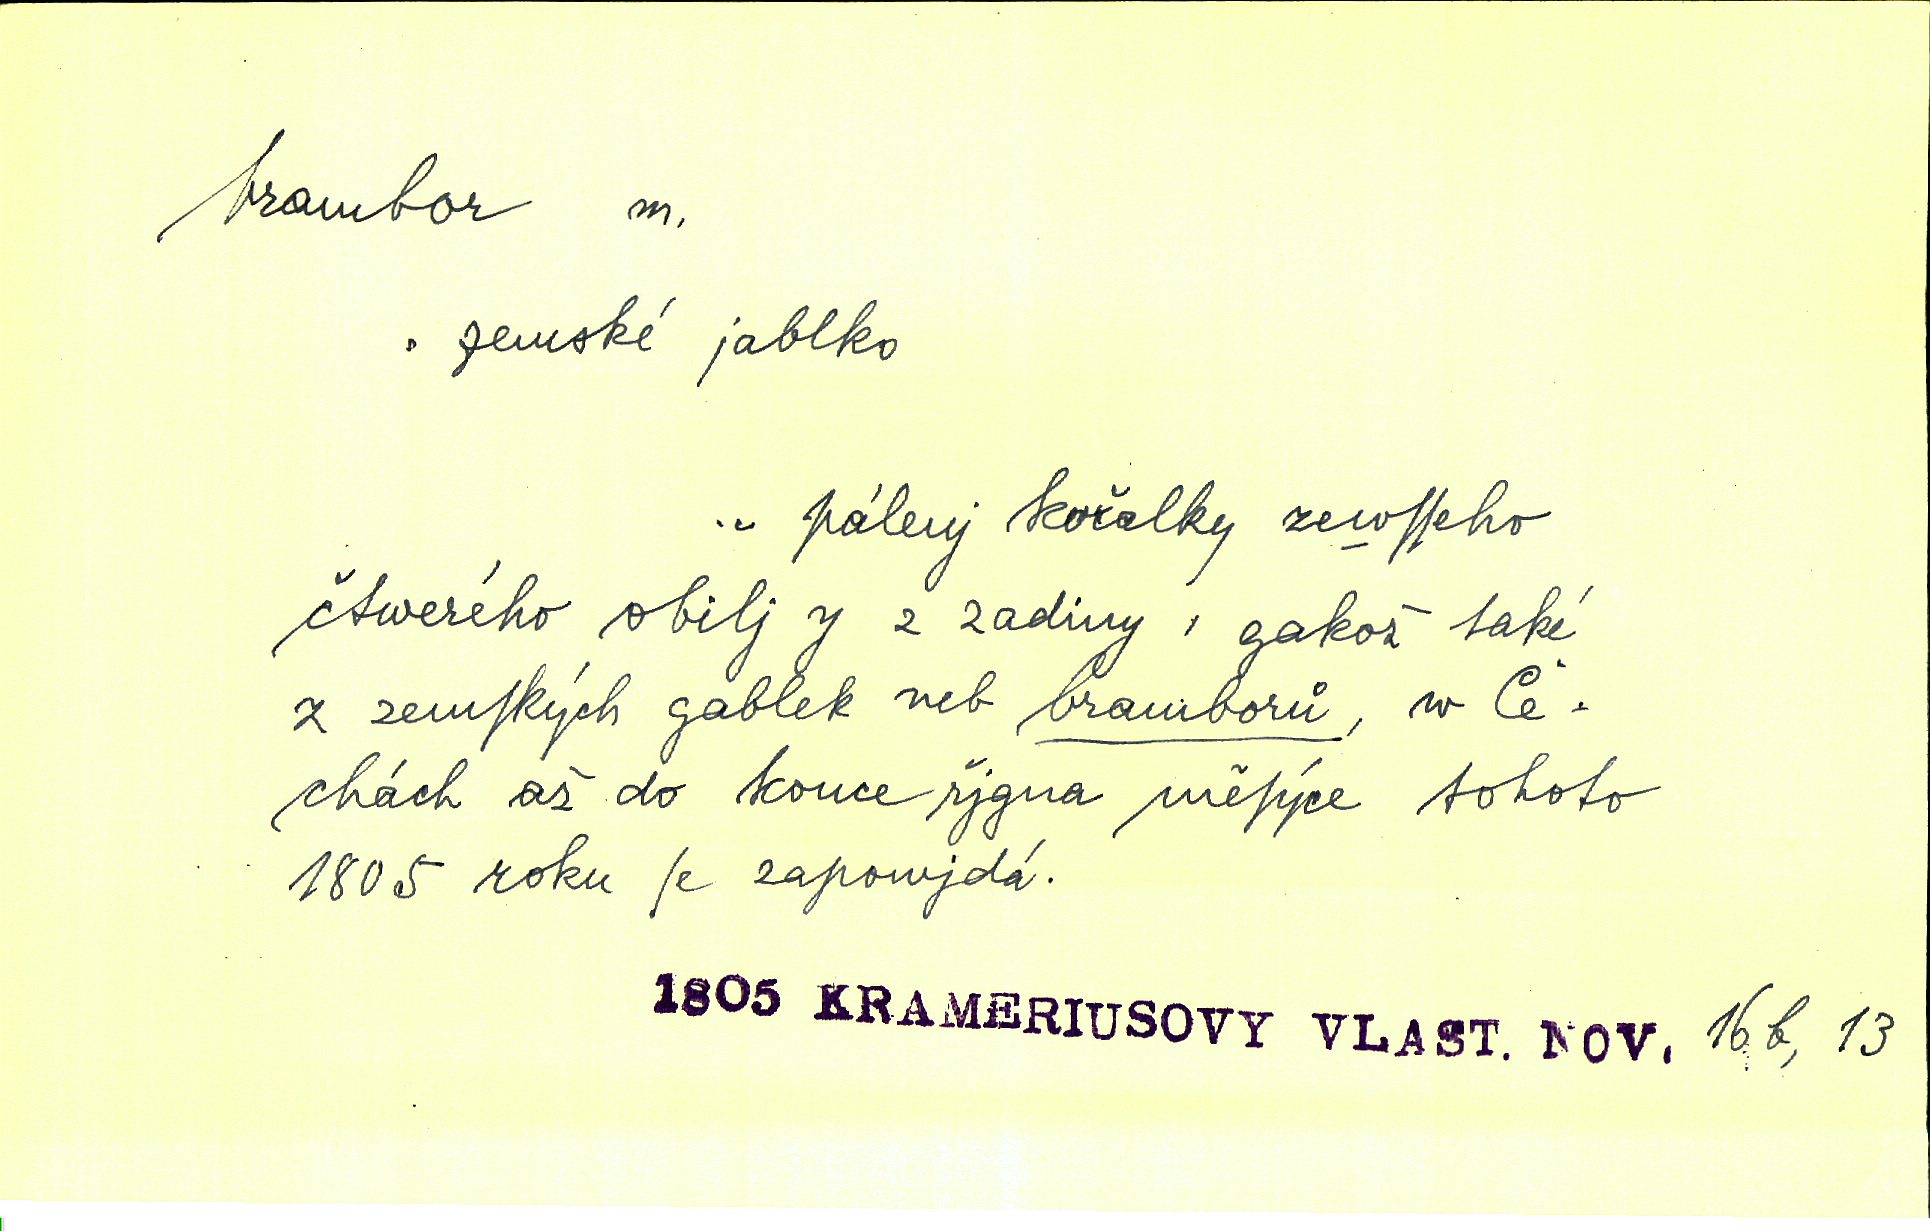 brambor m.
. zemské jablko
.. pálenj kořalky zewſſeho
čtwerého obilj y z zadiny, gakož také
z zemſkých gablek neb bramborů, w Če-
chách až do konce řjgna měſýce tohoto
1805 roku ſe zapowjdá.
1805 KRAMERIUSOVY VLAST. NOV. 16 b, 13